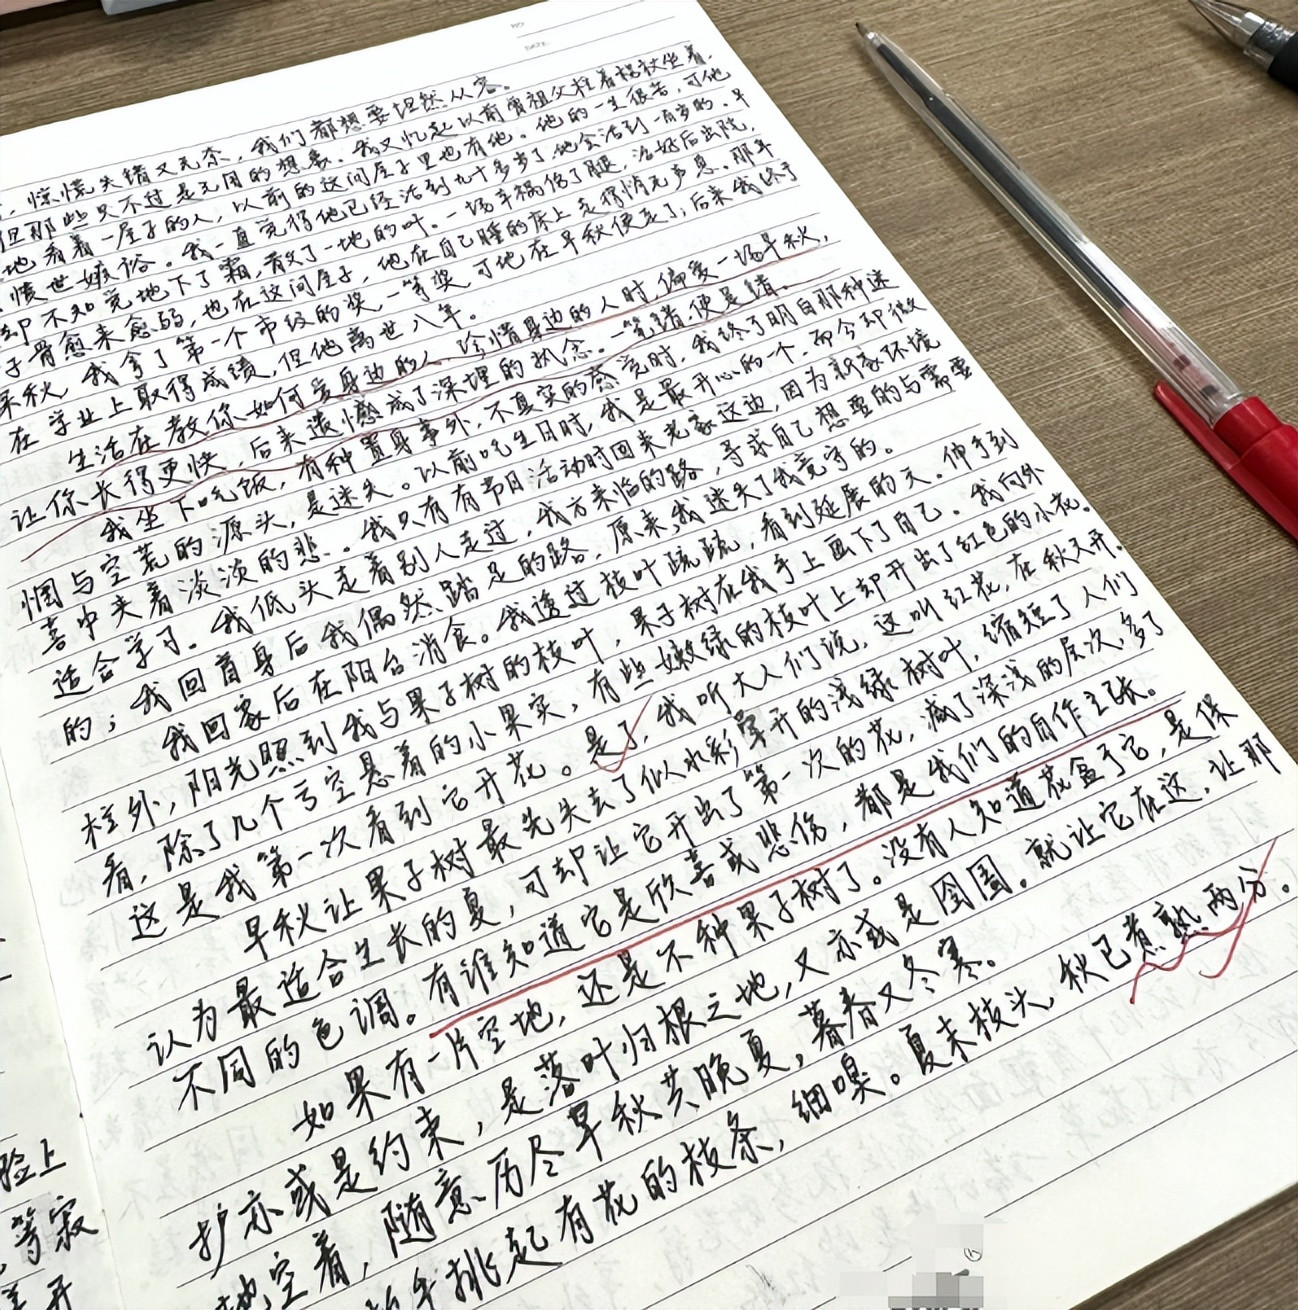 NO
DATE
惊慌失错又无奈，我们都想要坦然从容。
但那些只不过是无用的想要。我又忆起以前曾祖父拄着拐杖坐着，
地看着一屋子的人，以前的这间屋子里也有他。他的一生很苦，可他
愤世嫉俗。我一直觉得他已经活到九十多岁了，他会活到一百岁的。早
却不知觉地下了霜，散了一地的叶。一场车祸伤了腿，治好后出院，
子骨愈来愈弱，也在这间屋子，他在自己睡的床上走得悄无声息。那年
末秋，我拿了第一个市级的奖，一等奖，可他在早秋便走了；后来我终于
在学业上取得成绩，但他离世八年。
生活在教你如何爱身边的人、珍惜身边的人时，偏爱一场早秋，
让你长得更快，后来遗憾成了深埋的执念。一第错便是错。
我坐下吃饭，有种置身事外，不真实的感觉时，我终于明白那种迷
惘与空荒的源头，是迷失。以前吃生日时，我是最开心的一个，而今却微
喜中夹着淡淡的悲。我只有有节日活动时回来老家这边，因为新家环境
适合学习。我低头走着别人走过，我方来临的路，寻求自己想要的与需要
的；我回首身后我偶然踏足的路，原来我迷失了我竟守的。
我回家后在阳台消食。我透过枝叶疏疏，看到延展的天。伸手到
栏外，阳光照到我与果子树的枝叶，果子树在我手上画下了自己。我向外
看，除了几个亏空悬着的小果实，有些嫩绿的枝叶上却开出了红色的小花。
这是我第一次看到它开花。是了，我听大人们说，这叫红花，在秋天开。
早秋让果子树最先失去了似水彩晕开的浅绿树叶，缩短了人们
认为最适合生长的夏，可却让它开出了第一次的花，减了深浅的层次，多了
不同的色调。有谁知道它是欣喜或悲伤，都是我们的自作主张。
如果有一片空地，还是不种果子树了。没有人知道花盆于它，是保
护亦或是约束，是落叶归根之地，又亦或是囹圄。就让它在这，让那
地空着，随意历尽早秋共晚夏，暮春又冬寒。
挑起有花的枝条，细嗅。夏末枝头，秋已煮熟两分。
脸上
等寂
开